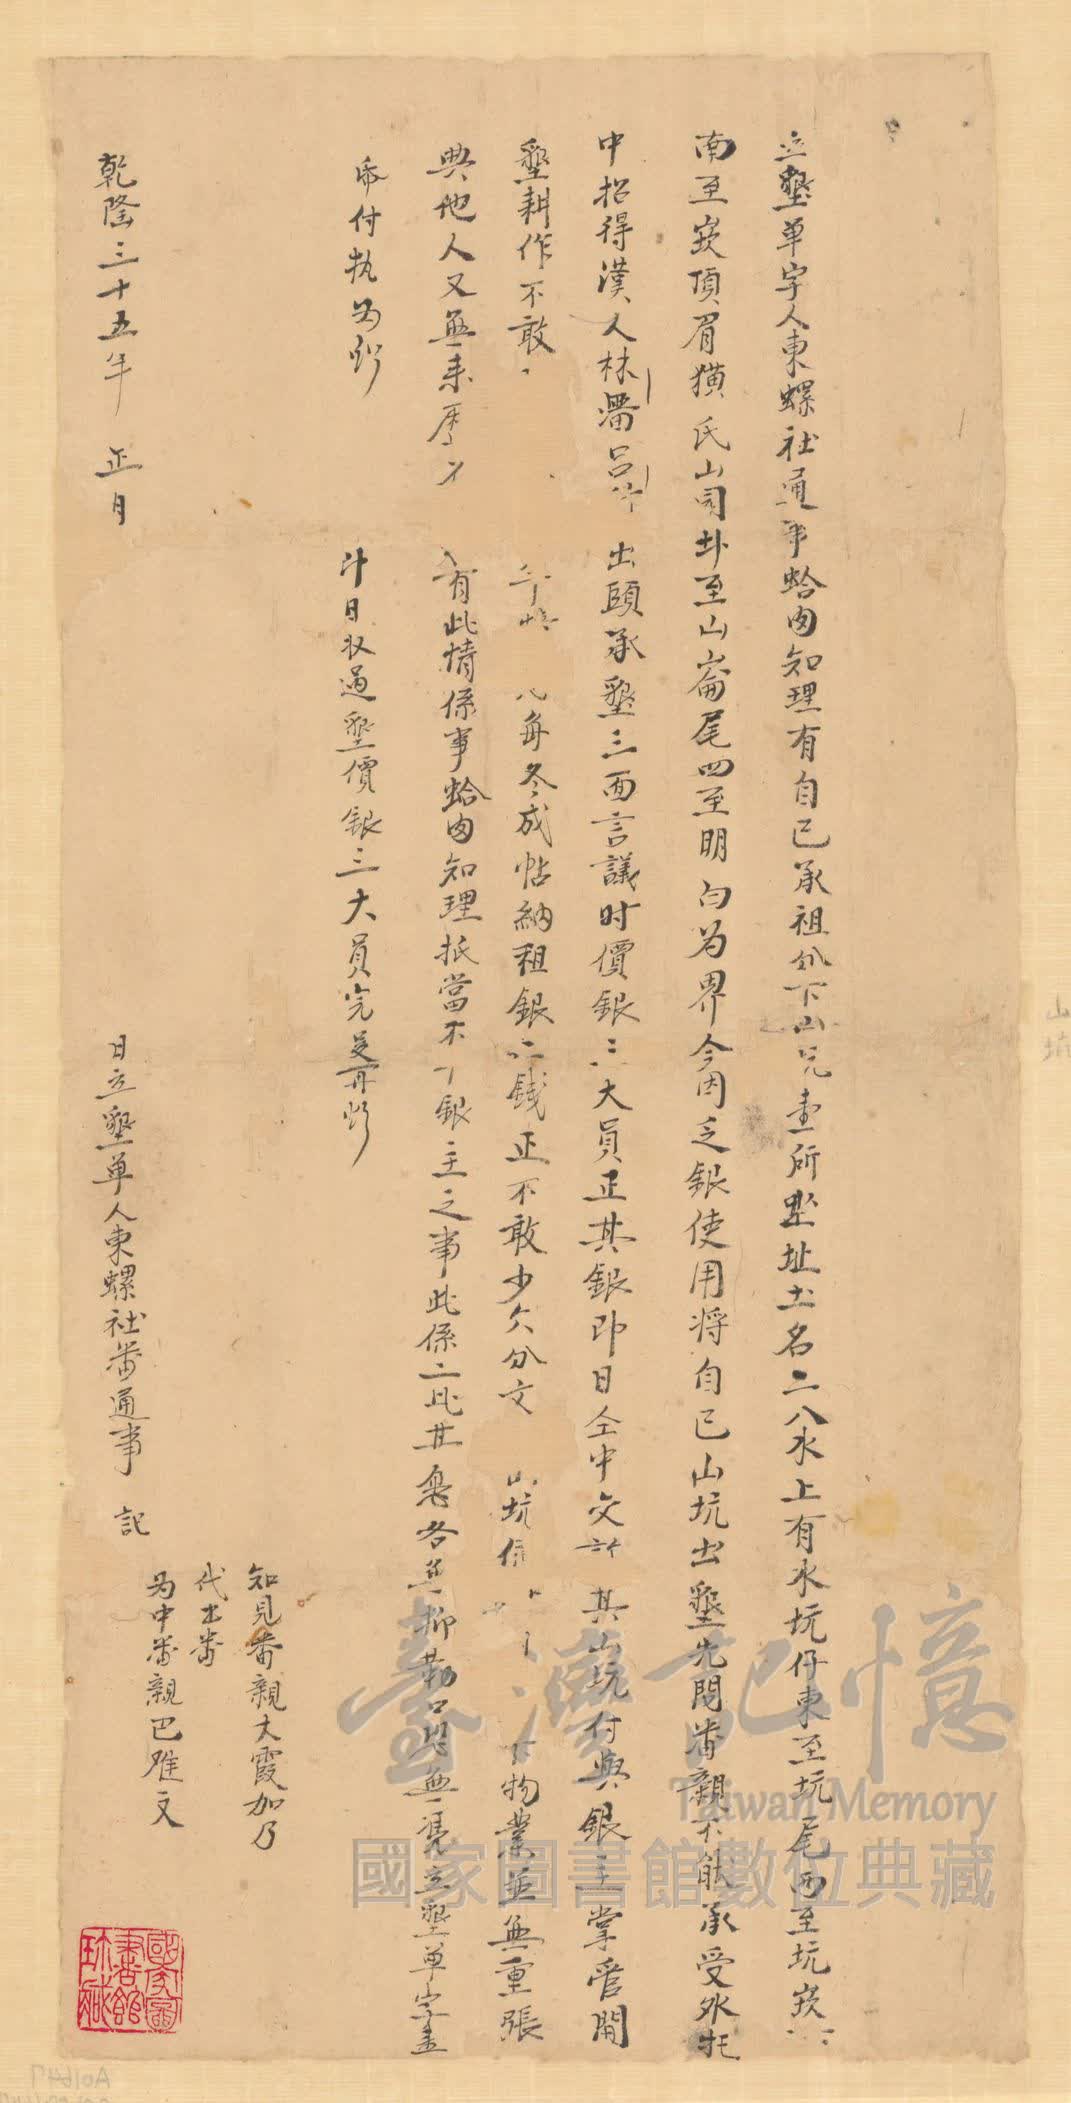 立墾单字人東螺社通事蛤肉知理有自己承祖分下山坑壹所坐址土名二八水上有水坑仔東至坑尾西至坑崁
南至崁頂眉獚氏山園北至山崙尾四至明白为界今因乏银使用将自己山坑出墾先問番親不能承受外托
中招得漢人林潘呂 出頭承墾三面言議时價銀三大員正其銀即日仝中交訖其山坑付與銀主掌管開
墾耕作不敢 年 八每冬成帖納租銀二錢正不敢少欠分文 山坑係 物業並無重張
典他人又無来历 有此情係事蛤肉知理抵當不干銀主之事此係二比甘愿各無抑勒口恐無凭立墾单字壹
帋付执为炤
计日收過墾價銀三大員完足再炤
乾隆三十五年 正月 日立墾单人東螺社番通事 記
知見番親大霞加乃
代書番
为中番親巴难文
臺灣記憶
Taiwan Memory
國家圖書館數位典藏
國家圖書館珍藏